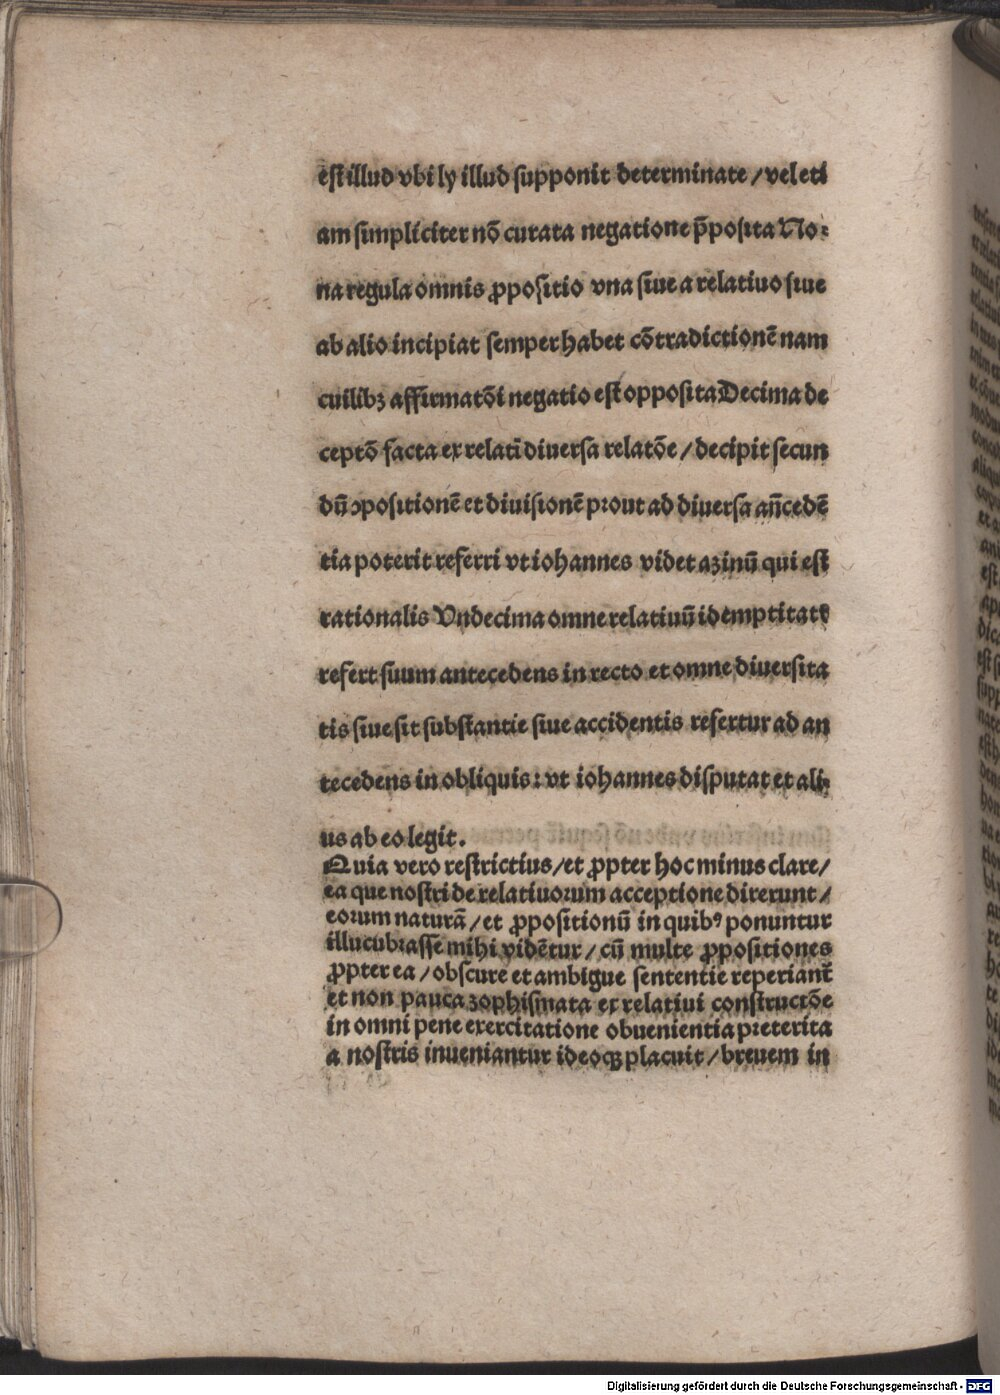 est illud vbi ly illud supponit determinate / vel eti
am simpliciter nō curata negatione p̄posita No⸗
na regula omnis ꝓpositio vna siue a relatiuo siue
ab alio incipiat semper habet cōtradictionē nam
cuilibꝫ affirmatōi negatio est opposita Decima de
ceptō facta ex relatī diuersa relatōe / decipit secun
dū ꝯpositionē et diuisionē prout ad diuersa añcedē
tia poterit referri vt iohannes videt azinū qui est
rationalis Vndecima omne relatiuū idemptitatꝭ
refert suum antecedens in recto et omne diuersita
tis siue sit substantie siue accidentis refertur ad an
tecedens in obliquis : vt iohannes disputat et ali⸗
us ab eo legit .
Quia vero restrictius / et ꝓpter hoc minus clare /
ea que nostri de relatiuorum acceptione dixerunt /
eorum naturā / et ꝓpositionū in quibꝰ ponuntur
illucubrasse mihi vidētur / cū multe ꝓpositiones
ꝓpter ea / obscure et ambigue sententie reperiant᷑
et non pauca zophismata ex relatiui constructōe
in omni pene exercitatione obuenientia preterita
a nostris inueniantur ideoqꝫ placuit / breuem in
Digitalisierung gefördert durch die Deutsche Forschungsgemeinschaft - DFG